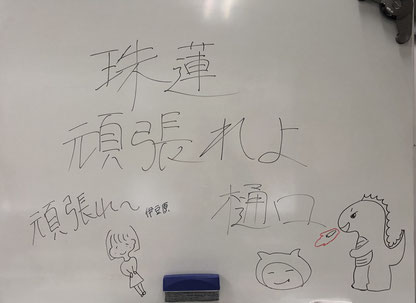 珠蓮
頑張れよ
樋口
頑張れ〜 伊豆原